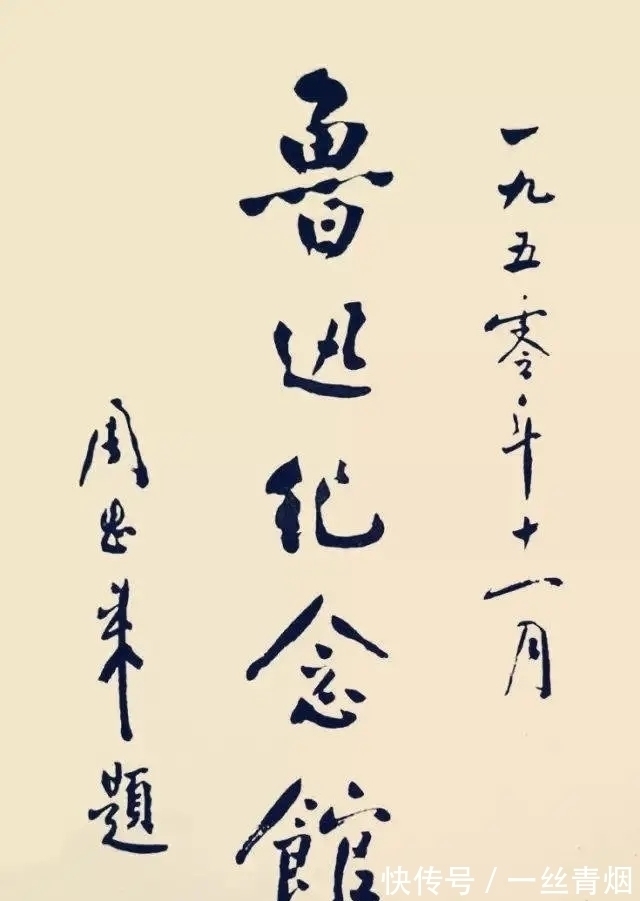 一九五零年十一月
魯迅纪念館
周恩来題
快传号／一丝青烟